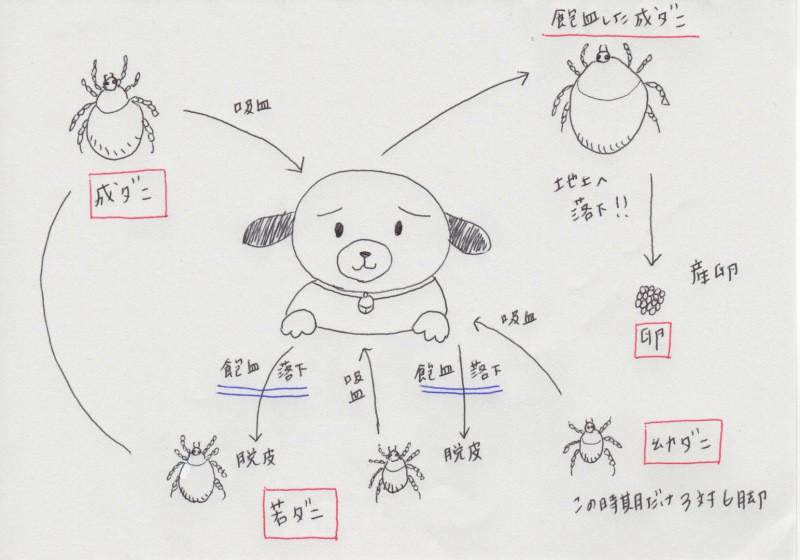 飽血した成ダニ
吸血
成ダニ
地上へ
落下!!
産卵
卵
吸血
飽血 落下
吸血
飽血 落下
脱皮
脱皮
幼ダニ
若ダニ
この時期だけ3対6脚